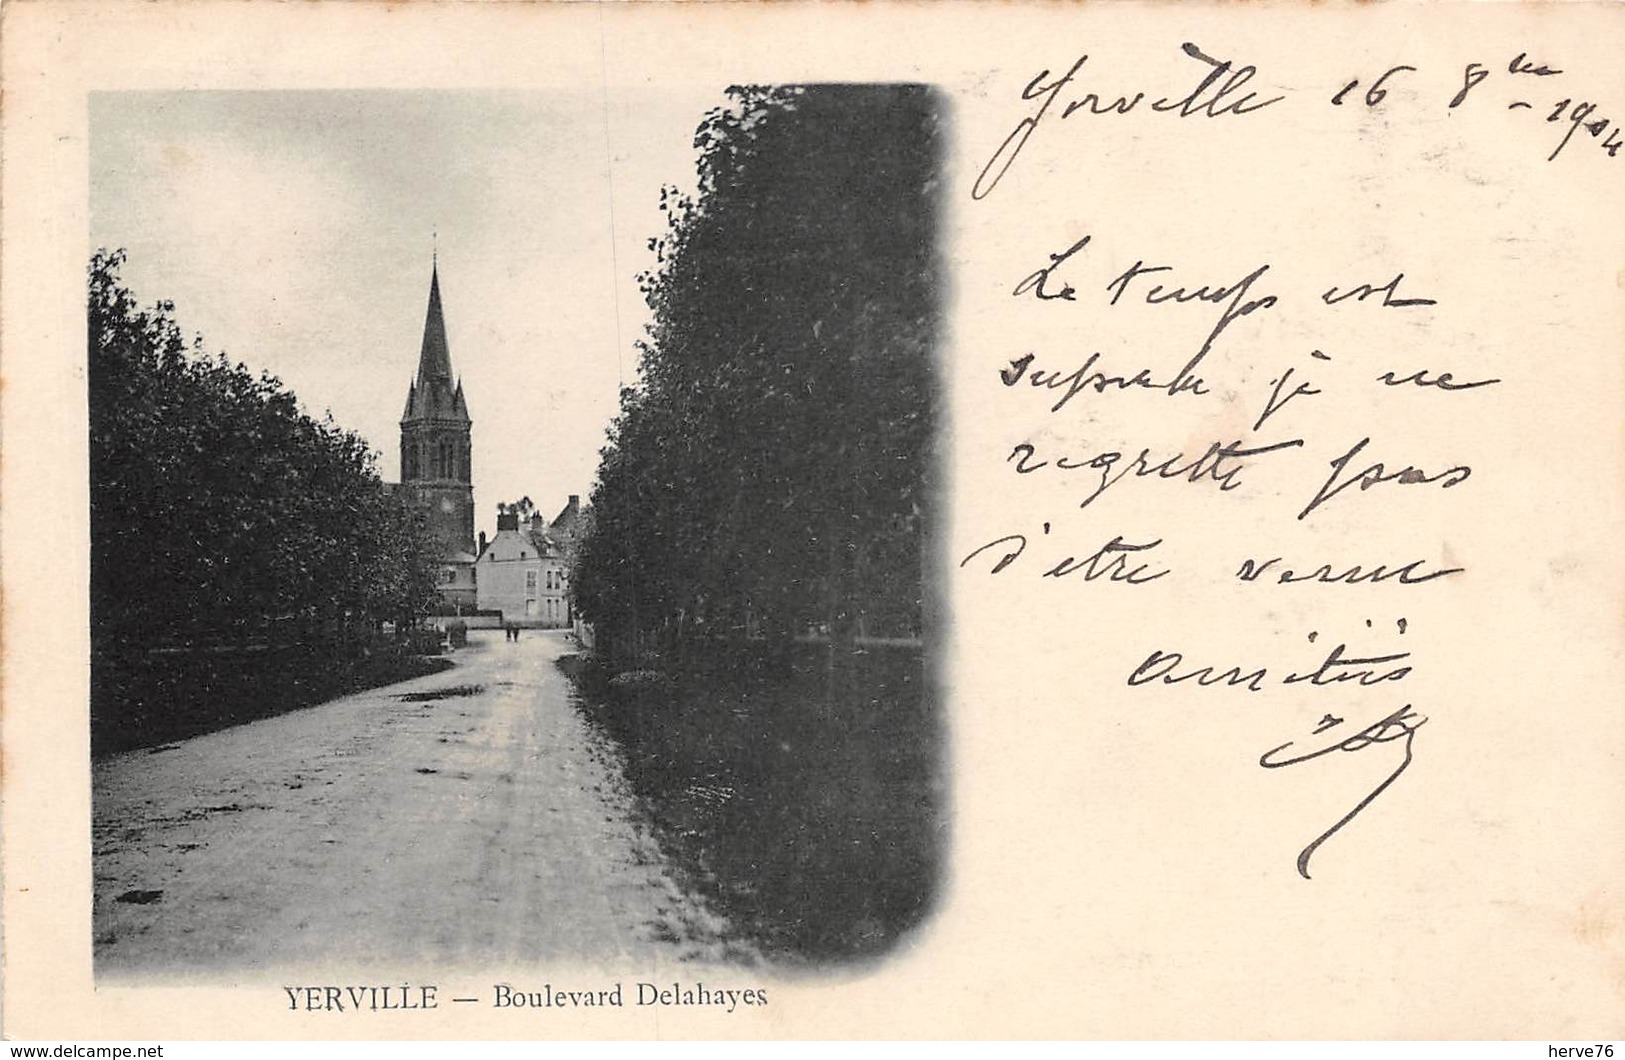 Yerville 16 8bre 1904
Le temps est
superbe je ne
regrette pas
d'etre venue
Amitiés
YERVILLE — Boulevard Delahayes
www.delcampe.net
herve76